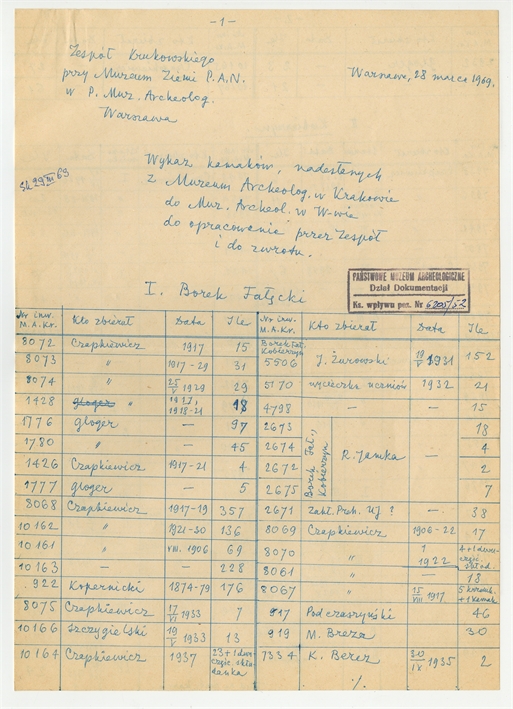 -1-
Zespół Krukowskiego
przy Muzeum Ziemi P.A.N.
w P. Muz. Archeolog.
Warszawa
Warszawa, 28 marca 1969.
29 III 69
Wykaz kamaków, nadesłanych
z Muzeum Archeolog. w Krakowie
do Muz. Archeol. w W-wie
do opracowania przez Zespół
i do zwrotu.
PAŃSTWOWE MUZEUM ARCHEOLOGICZNE
Dział Dokumentacji
Ks. wpływu poz. Nr 6205/52
I. Borek Fałęcki
Nr inw. M.A.Kr. Kto zbierał Data Ile
8072 Czapkiewicz 1917 15
8073 " 1917-29 31
8074 " 25/V 1929 29
1428 gloger " 1918-21 18
1776 gloger — 97
1780 " — 45
1426 Czapkiewicz 1917-21 4
1777 gloger — 5
8068 Czapkiewicz 1917-19 357
10162 " 1921-30 136
10161 " VIII. 1906 69
10163 — — 228
922 Kopernicki 1874-79 176
8075 Czapkiewicz 17/VI 1933 7
10166 Szczygielski 19/V 1933 13
10164 Czapkiewicz 1937 23+1 dwu-
częśc. skła-
danka
Nr inw. M.A.Kr. Kto zbierał Data Ile
Borek Fał.
Kobierzyn
5506 J. Żurowski 19/V 1931 152
5170 wycieczka uczniów 1932 21
4798 — — 15
Borek Fał., Kobierzyn
R. Jamka —
2673 18
2674 4
2672 2
2675 7
2671 Zakł. Preh. UJ ? — 38
8069 Czapkiewicz 1906-22 17
8070 " 1922 4+1 dwu-
częśc.
skład.
8061 — 18
8067 " 15/VIII 1917 5
+1 kamak
917 Podczaszyński 46
919 M. Breza 30
7334 K. Bercz 30/IX 1935 2
./.